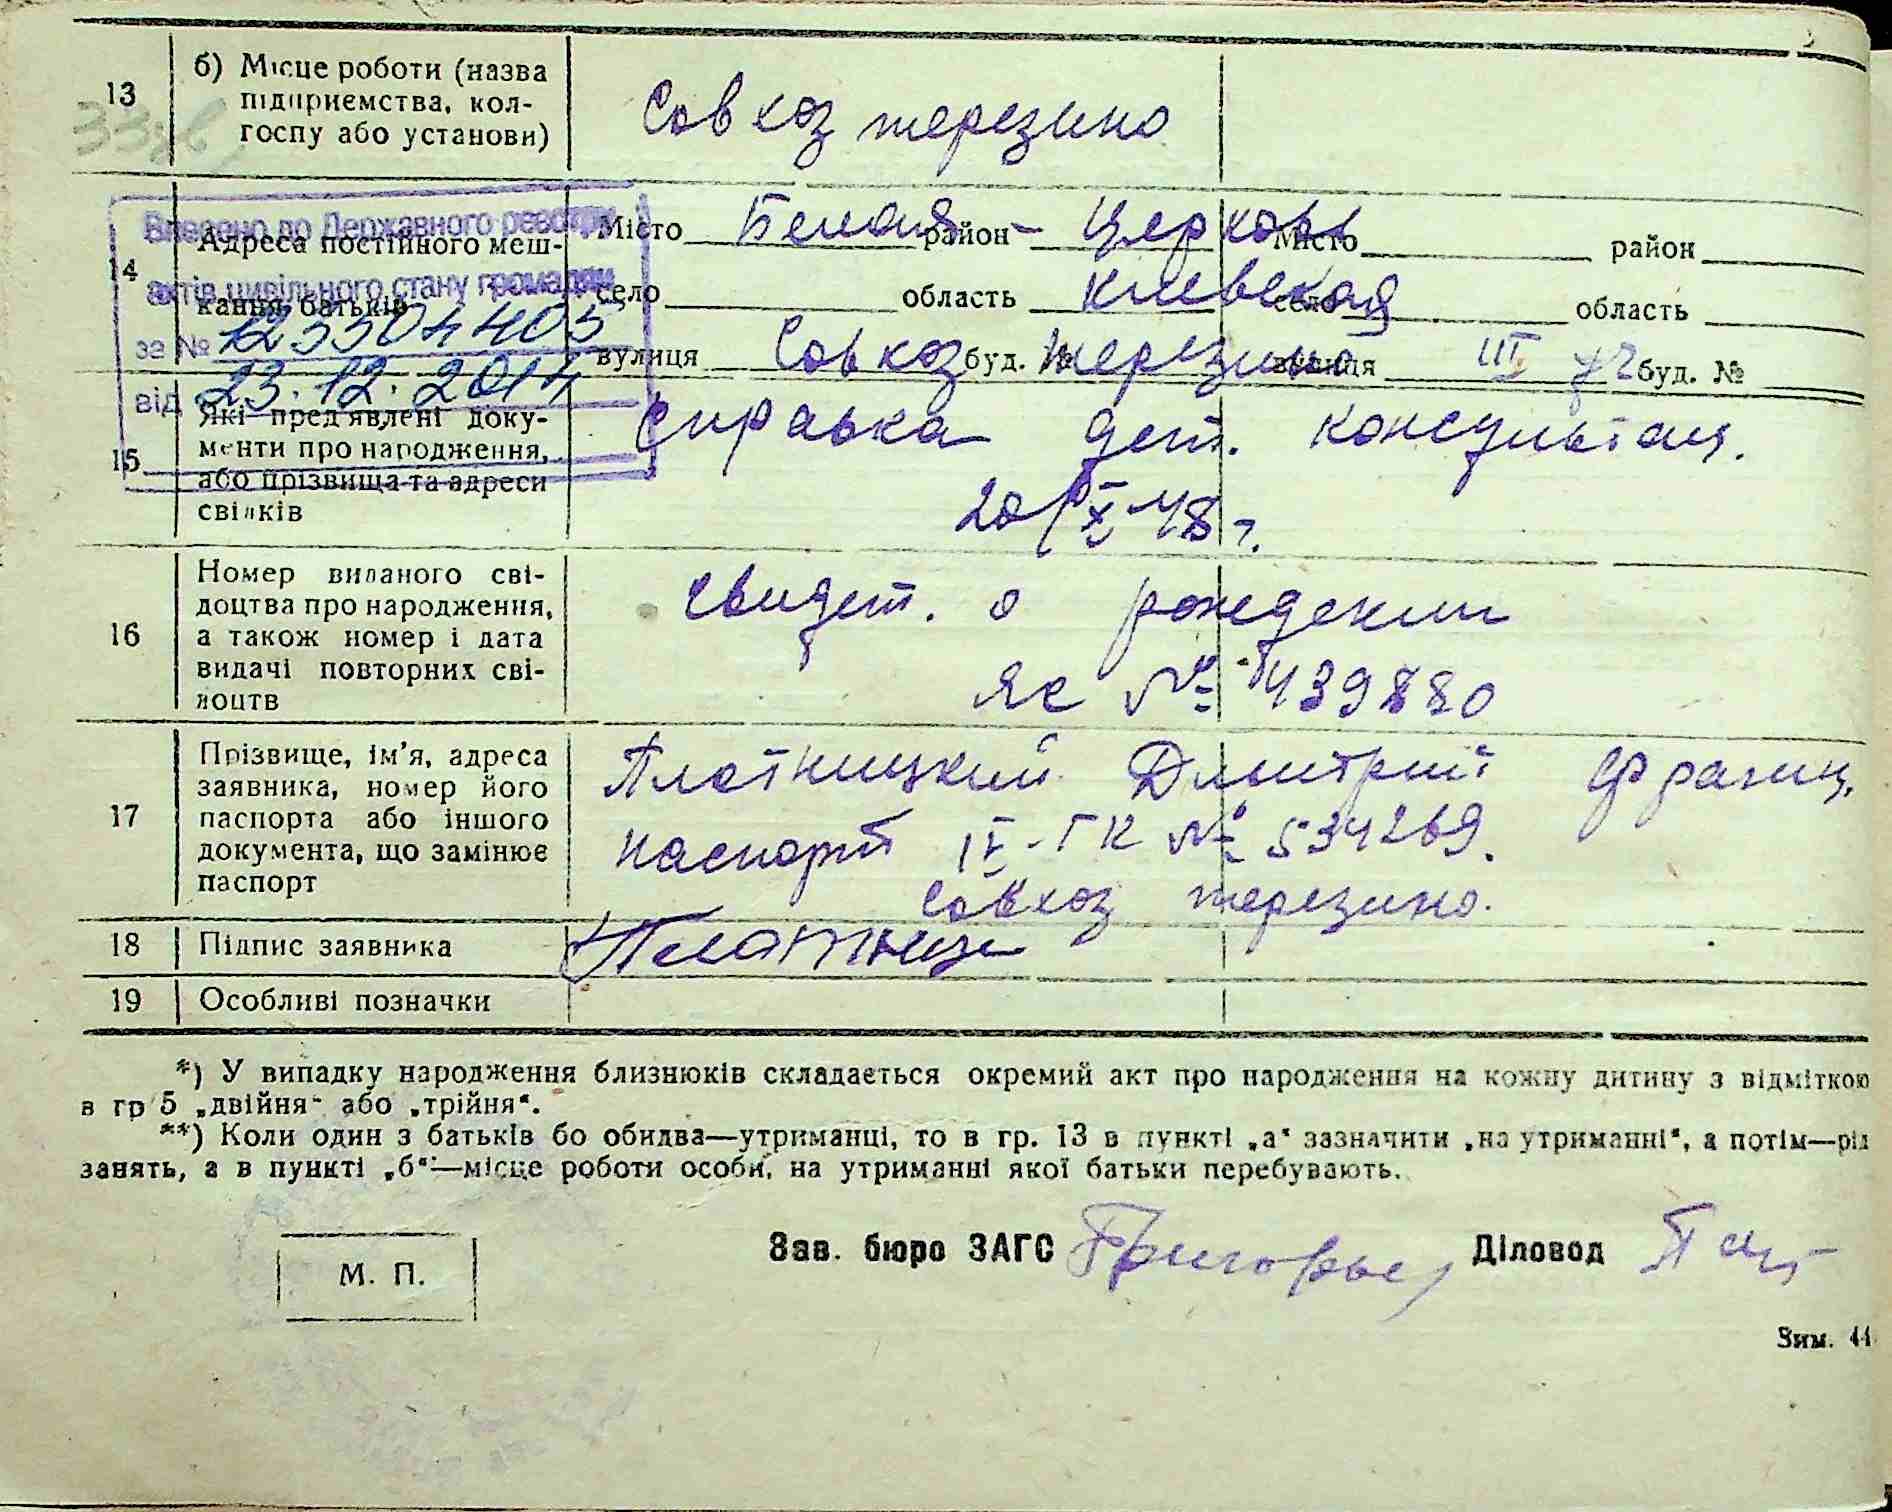 13 б) Місце роботи (назва
підприємства, кол-
госпу або установи)
Совхоз терезино
Внесено до Державного реєстру
актів цивільного стану громадян
за № 12350
від 23.12.2014
14 Адреса постійного меш-
кання батьків
Місто Белая район - Церковь Місто район
село область киевская село область
вулиця Совхоз буд. № терезино вулиця III буд. №
15 Які пред'явлені доку-
менти про народження,
або прізвища та адреси
свідків
Справка дет. консультац.
20/X-48 г.
16 Номер виданого сві-
доцтва про народження,
а також номер і дата
видачі повторних сві-
доцтв
свидет. о рождении
ЯС № 439880
17 Прізвище, ім'я, адреса
заявника, номер його
паспорта або іншого
документа, що замінює
паспорт
Плотницкий Дмитрий Франц.
паспорт IV-ГК № 534269.
Совхоз терезино.
18 Підпис заявника
19 Особливі позначки
*) У випадку народження близнюків складається окремий акт про народження на кожну дитину з відміткою
в гр 5 „двійня“ або „трійня“.
**) Коли один з батьків бо обидва—утриманці, то в гр. 13 в пункті „а“ зазначити „на утриманні“, а потім—рід
занять, а в пункті „б“—місце роботи особи, на утриманні якої батьки перебувають.
М. П.
Зав. бюро ЗАГС Діловод
Зим. 44